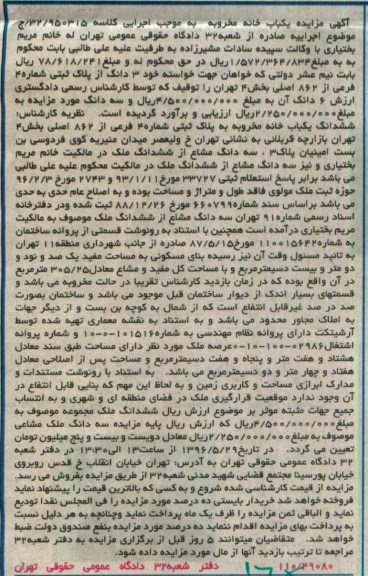 آگهی مزایده یکباب خانه مخروبه به موجب اجرایی کلاسه ۳۲/۹۵۰۳۱۵/ج
موضوع اجراییه صادره از شعبه۳۲ دادگاه حقوقی عمومی تهران له خانم مریم
بختیاری با وکالت سپیده سادات مشیرزاده به طرفیت علیه علی طالبی بابت محکوم
به به مبلغ۱/۵۷۲/۳۶۴/۸۳۴ریال در حق محکوم له و مبلغ۷۸/۶۱۸/۲۴۱ ریال
بابت نیم عشر دولتی که خواهان جهت خواسته خود ۳ دانگ از پلاک ثبتی شماره۴
فرعی از ۸۶۲ اصلی بخش۴ تهران را توقیف که توسط کارشناس رسمی دادگستری
ارزش ۶ دانگ آن به مبلغ ۴/۵۰۰/۰۰۰/۰۰۰ریال و سه دانگ مورد مزایده به
مبلغ۲/۲۵۰/۰۰۰/۰۰۰ریال ارزیابی و برآورد گردیده است. نظریه کارشناس:
ششدانگ یکباب خانه مخروبه به پلاک ثبتی شماره۴ فرعی از ۸۶۲ اصلی بخش۴
تهران بازارچه قربلانی به نشانی تهران خ ولیعصر میدان منیریه کوی فردوسی بن
بست امینیان پلاک۳ ، سه دانگ مشاع از ششدانگ ملک در مالکیت خانم مریم
بختیاری و نیز سه دانگ مشاع از ششدانگ ملک در مالکیت محکوم علیه علی طالبی
می باشد برابر پاسخ استعلام ثبتی ۳۳۷۲۷ مورخ۹۳/۱۱/۱ و ۲۷۴۳ مورخ ۹۶/۲/۳
حوزه ثبت ملک مولوی فاقد طول و متراژ و مساحت بوده و به اصلاح عام حدی به حدی
می باشد براساس سند شماره۶۶۰۷۹۹ مورخ ۸۸/۱۲/۲۶ ثبت شده ودر دفترخانه
اسناد رسمی شماره۹۱ تهران سه دانگ مشاع از ششدانگ ملک موصوف به مالکیت
مریم بختیاری درآمده است همچنین با استناد به رونوشت قسمتی از پروانه ساختمان
به شماره۱۱۰۰۱۵۶۴۲ مورخ۸۷/۵/۱۵ صادره از جانب شهرداری منطقه۱۱ تهران
به تائید مسئول وقت آن نیز رسیده بنای مسکونی به مساحت مفید یک صد و نود و
دو متر و بیست دسیمترمربع و با مساحت کل مفید و مشاع معادل۳۰۵/۲۵ مترمربع
در آن واقع بوده که در زمان بازدید کارشناس تقریبا در حالت مخروبه می باشد و
قسمتهای بسیار اندک از دیوار ساختمان قبل موجود می باشد و ساختمان بصورت
صد در صد غیرقابل انتفاع است که از شمال به کوچه بن بست و از دیگر جهات
به املاک مجاور محدود می باشد و به استناد به نقشه معماری تهیه شده توسط
آرشیتکت دارای پروانه نظام مهندسی به شماره۱۰۱۵۱۶-۰-۱۰ و شماره پروانه
هشتاد و هفت متر و پنجاه و هفت دسیمترمربع و مساحت پس از اصلاحی معادل
هفتاد و چهار متر و دو دسیمترمربع می باشد. به استناد با رونوشت مستندات و
مدارک ابرازی مساحت و کاربری زمین و به لحاظ این مهم که بنایی قابل انتفاع در
آن وجود ندارد موقعیت قرارگیری ملک در فضای منطقه ای و شهری و به انتساب
جمیع جهات مثبته موثر بر موضوع ارزش ریال ششدانگ ملک مجموعه موصوف به
مبلغ۴/۵۰۰/۰۰۰/۰۰۰ریال که ارزش ریال پایه مزایده سه دانگ ملک مشاعی
موصوف به مبلغ۲/۲۵۰/۰۰۰/۰۰۰ریال معادل دویست و بیست و پنج میلیون تومان
تعیین می گردد. در تاریخ۱۳۹۶/۵/۲۹ از ساعت۱۳ الی۱۳:۳۰ در دفتر شعبه
۳۲ دادگاه عمومی حقوقی تهران به آدرس: تهران خیابان انقلاب خ قدس روبروی
خیابان پورسینا مجتمع قضایی شهید مدنی شعبه۳۲ از طریق مزایده بفروش می رسد.
مزایده از قیمت کارشناسی شده شروع و به کسی که بالاترین قیمت را پیشنهاد نماید
فروخته خواهد شد خریدار بایستی ده درصد مورد مزایده را فی المجلس نقدا تودیع
نماید و الباقی ثمن مزایده را ظرف یک ماه پرداخت نماید وچنانچه به هر دلیل نسبت
به پرداخت بهای مزایده اقدام ننماید ده درصد مورد مزایده بنفع صندوق دولت ضبط
خواهد شد. متقاضیان میتوانند ۵ روز قبل از برگزاری مزایده به دفتر شعبه۳۲
مراجعه تا ترتیب بازدید آنها از مال مورد مزایده داده شود.
۱۱۰/۴۹۰۸۰ دفتر شعبه۳۲ دادگاه عمومی حقوقی تهران